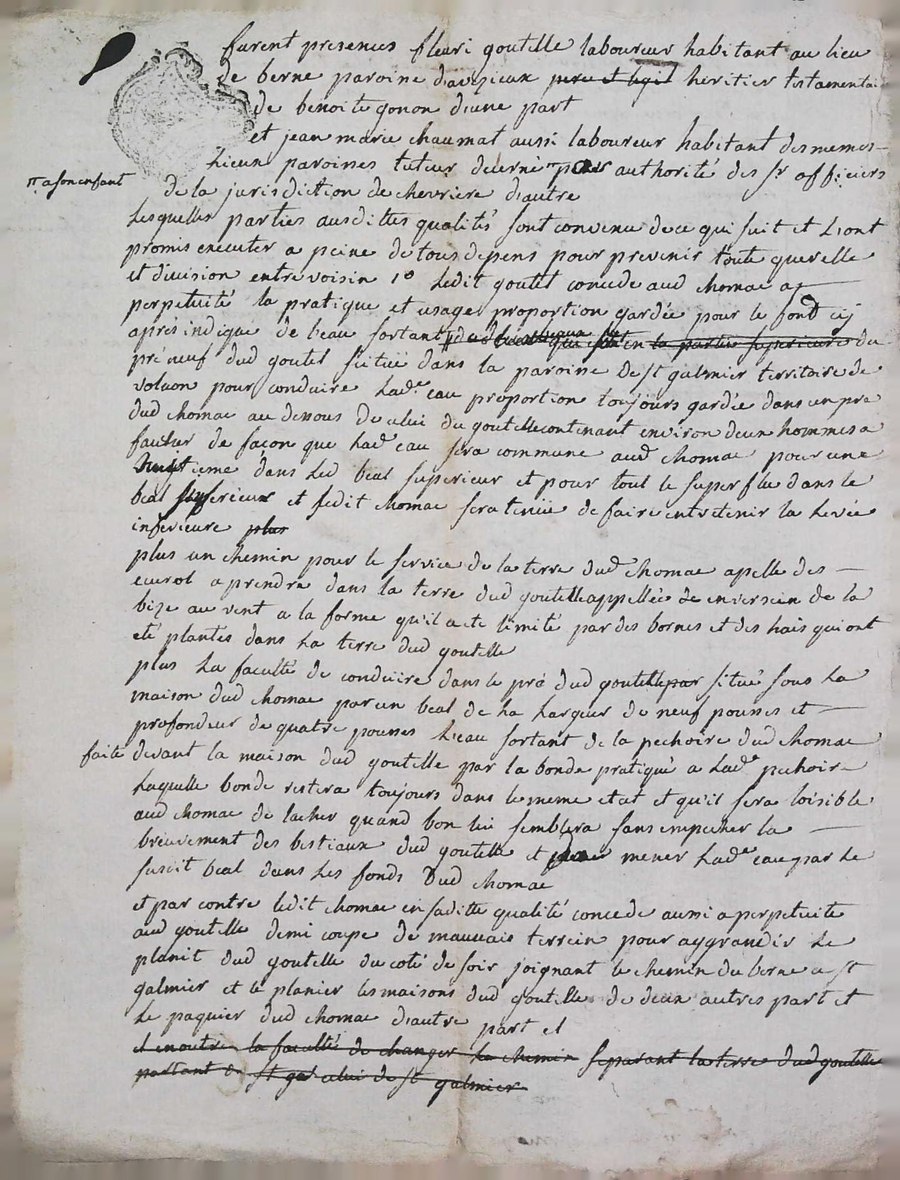 furent presences fleuri goutelle laboureur habitant au lieu
de berne paroine d'avezieux heritier testamentai
de benoite gonon d'une part
et jean marie chaumat aussi laboureur habitant des memes
Lieux paroines tuteur décerné par authorité des sr officiers
π a son enfant
de la jurisdiction de chevriere d'autre
Lesquelles parties ausdittes qualités sont convenu de ce qui suit et L'ont
promis executer a peine de tous depens pour prevenir toute querelle
et division entre voisin 1° Ledit goutel concede aud chomac a
perpetuité la pratique et usage proportion gardée pour le fond cy
après indiqué de l'eau sortant qui en la partie superieure du
pré neuf dud goutel situé dans la paroine de st galmier territoire de
voluon pour conduire Lade eau proportion toujours gardée dans un pré
dud chomac au dessous de celui du goutelle contenant environ deux hommes a
faucher de façon que Lade eau sera commune aud chomac pour une
huitieme dans Led beal superieur et pour tout le superflu dans le
beal inferieur et ledit chomac sera tenüe de faire entretenir la Levée
inferieure plus
plus un chemin pour le service de la terre dud chomac apellé des
eucrol a prendre dans la terre dud goutelle appellée de enversein de la
bize au vent a la forme qu'il a ete limité par des bornes et des hais qui ont
eté plantes dans La terre dud goutelle
plus La faculté de conduire dans le pré dud goutelle par situé sous La
maison dud chomac par un beal de la Largeur de neuf pouces et
profondeur de quatre pouces L'eau sortant de la pechoire dud chomac
faite devant la maison dud goutelle par la bonde pratiqué a Lade pechoire
Laquelle bonde restera toujours dans le meme etat et qu'il sera loisible
aud chomac de lacher quand bon lui semblera sans empecher la
breuvement des bestiaux dud goutelle et mener Lade eau par le
susdit beal dans Les fonds dud chomac
et par contre ledit chomac en saditte qualité concede aussi a perpetuité
aud goutelle demi coupe de mauvais terrein pour aggrandir Le
planit dud goutelle du coté de soir joignant le chemin de berne a st
galmier et le planier les maisons dud goutelle de deux autres part et
Le paquier dud chomac d'autre part et
et en outre la faculté de changer Le chemin separant la terre dud goutelle
partant de st celui de st galmier